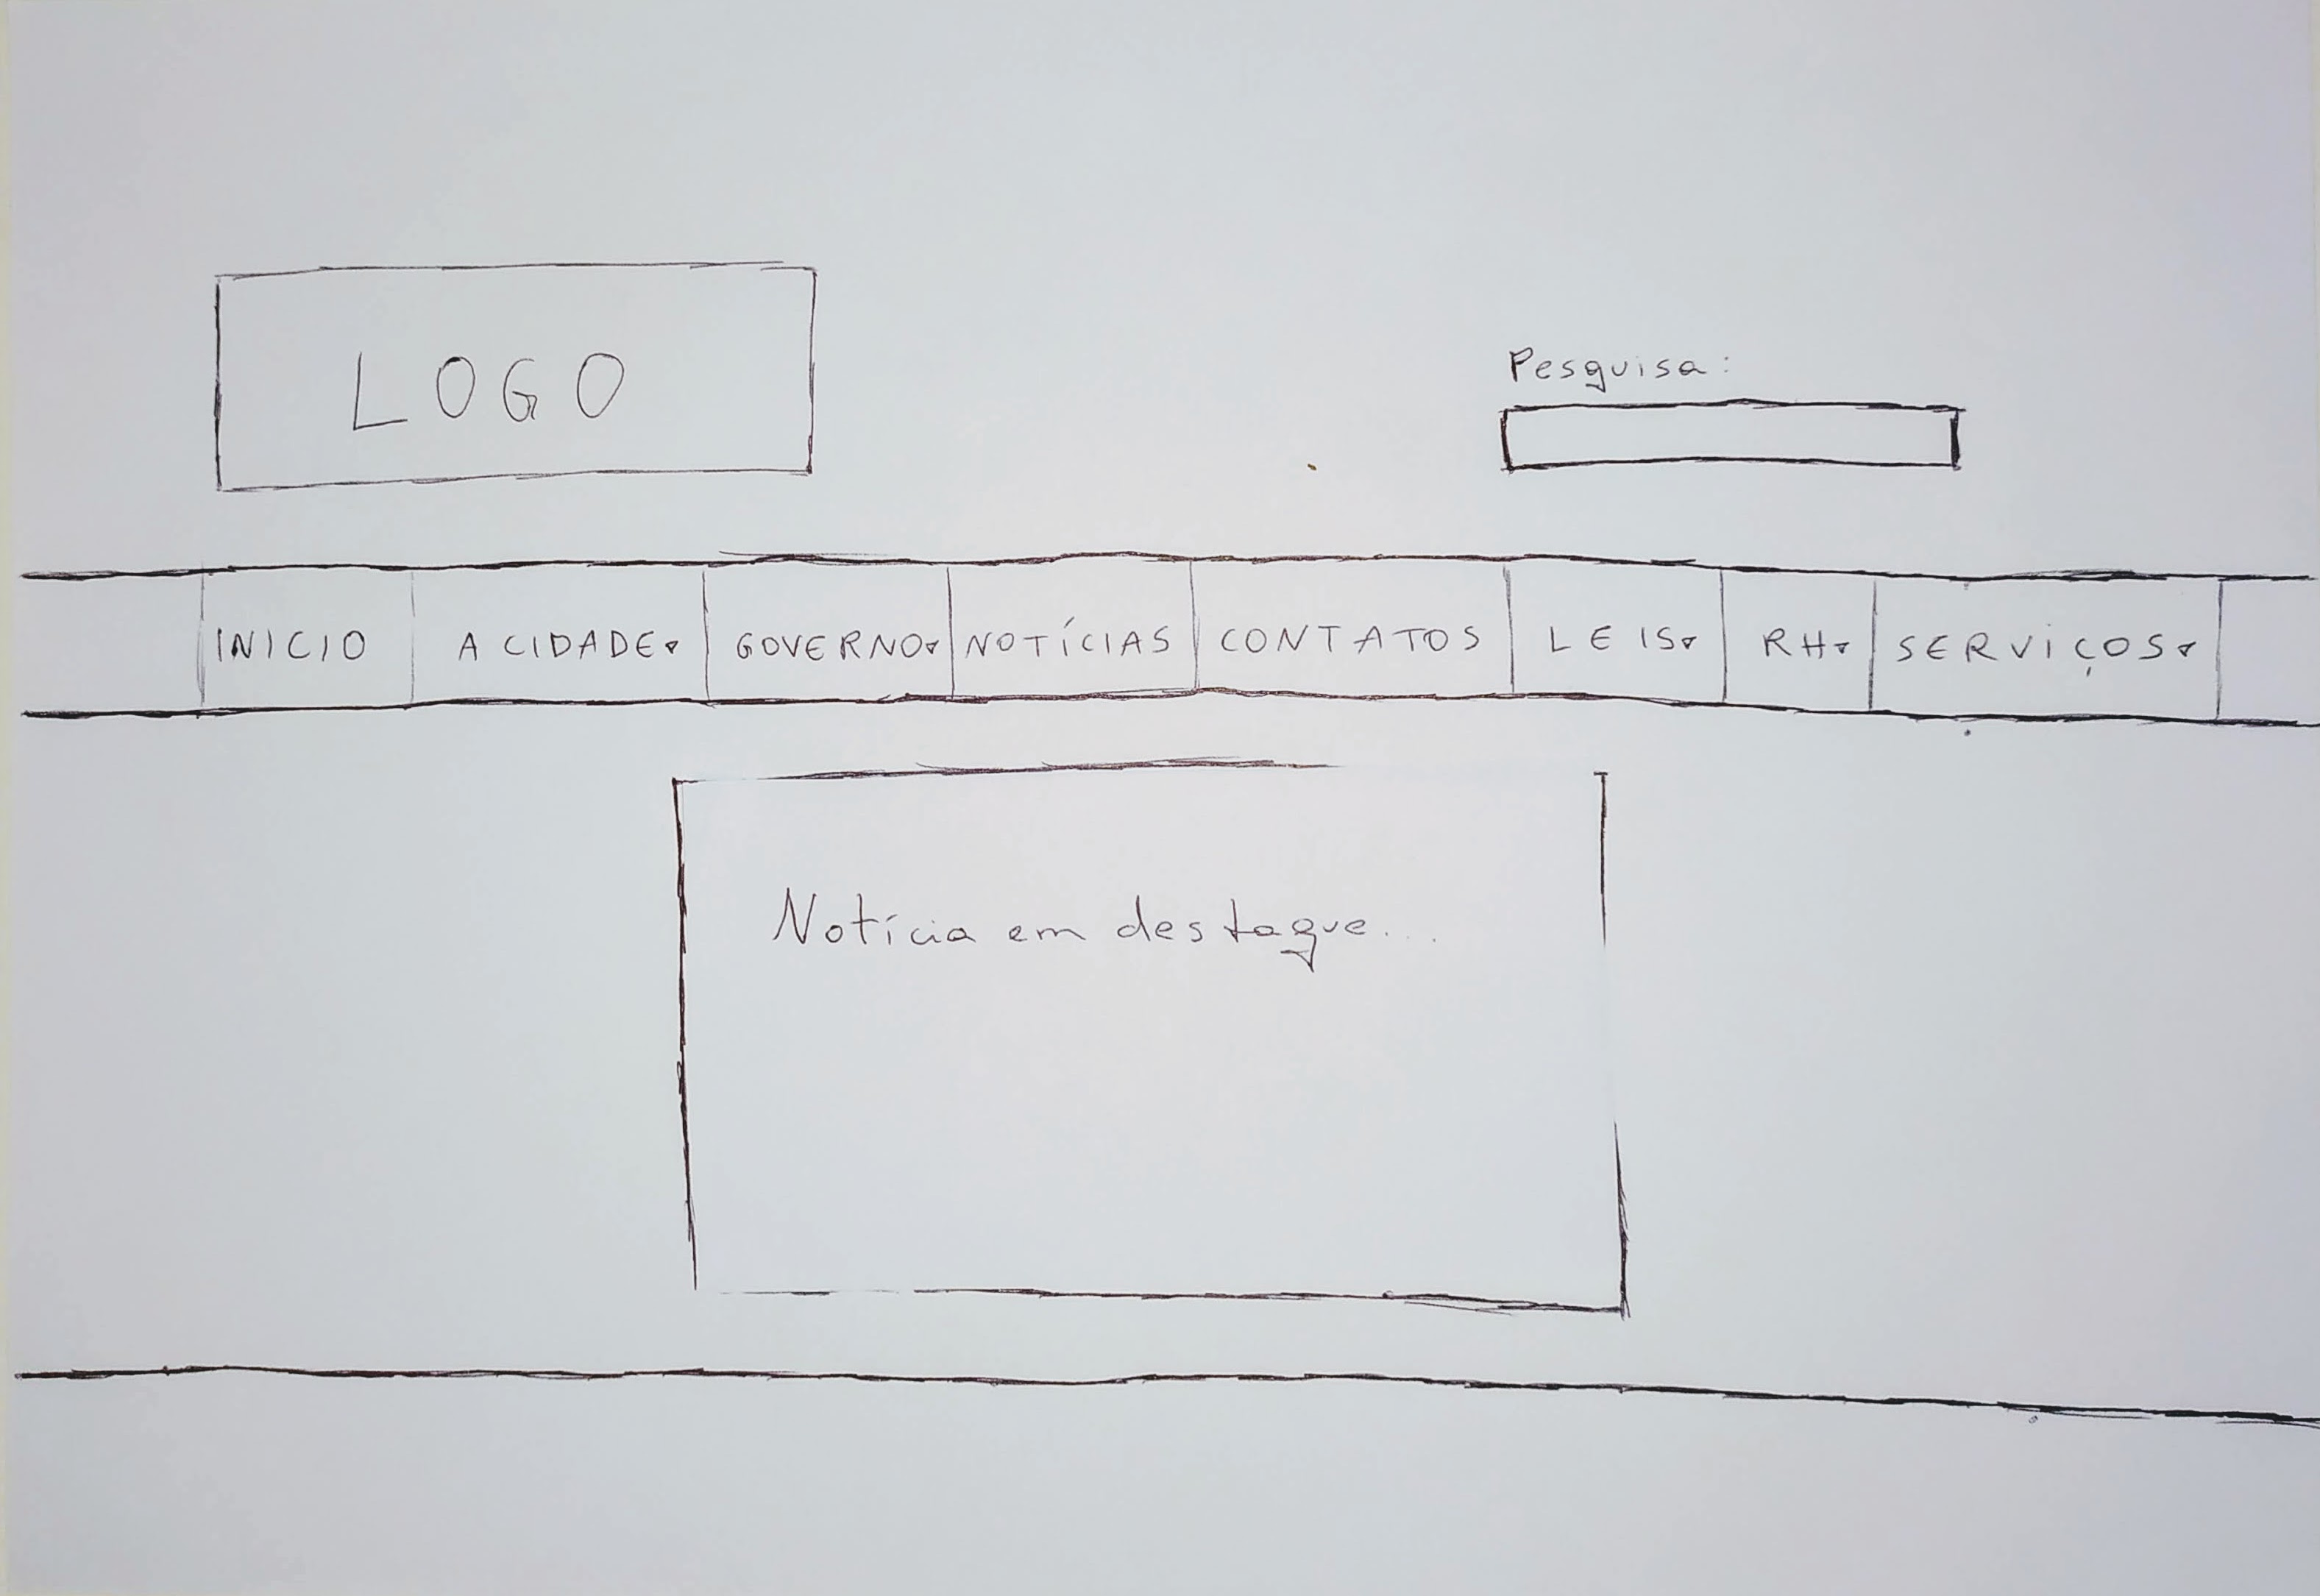 LOGO
Pesquisa:
INICIO A CIDADE▾ GOVERNO▾ NOTÍCIAS CONTATOS LEIS▾ RH▾ SERVIÇOS▾
Notícia em destaque...